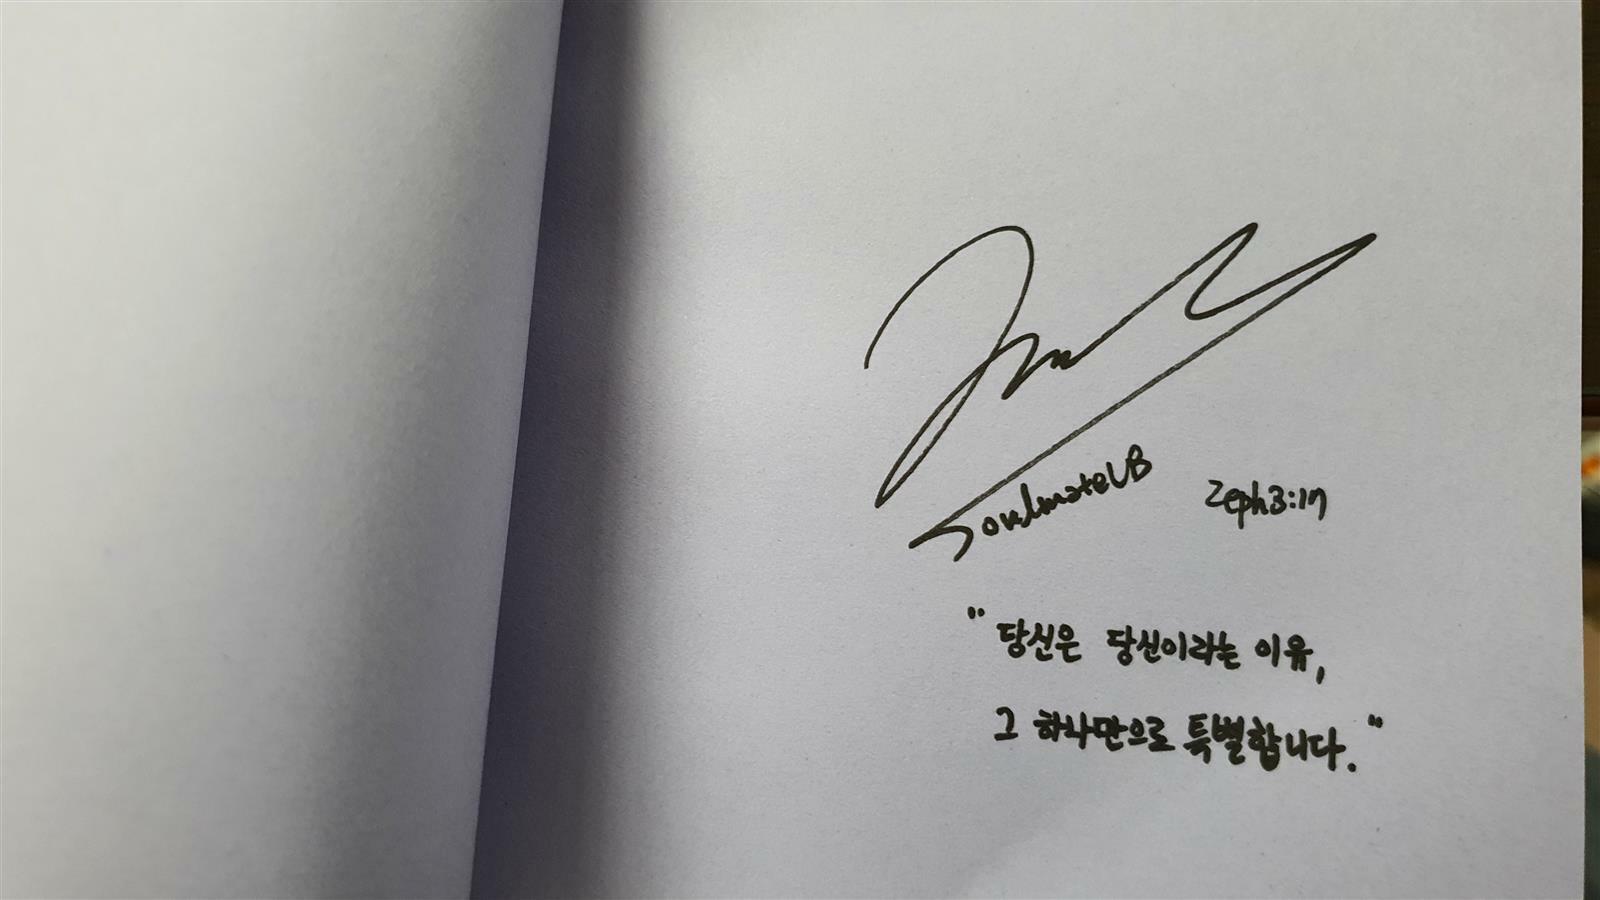 SoulmateUB
Zeph3:17
"당신은 당신이라는 이유,
그 하나만으로 특별합니다."